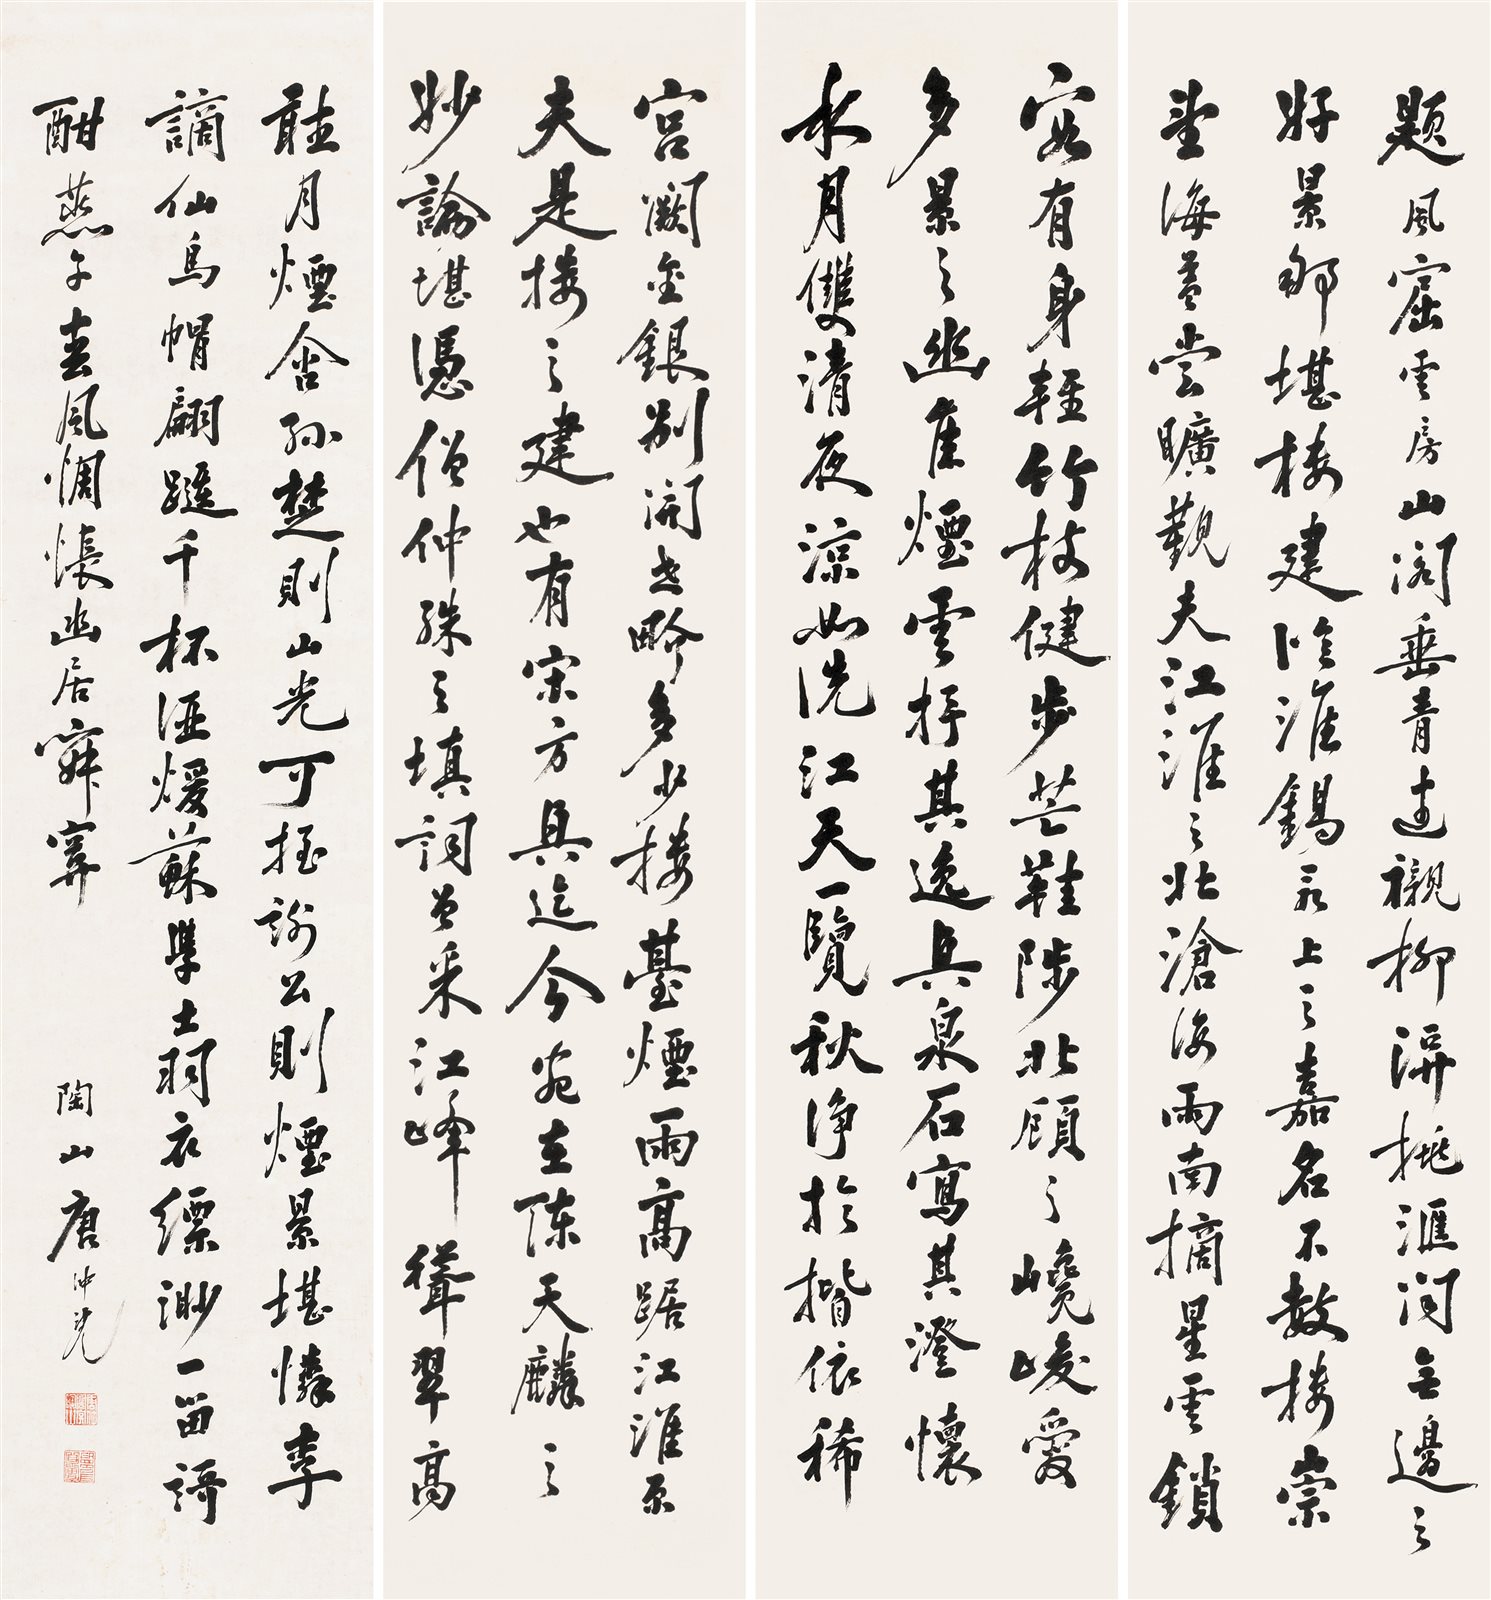 題風窟雲房山閣垂青遠襯柳洴挑滙潤無邊之
好景那堪樓建臨淮錫永上之嘉名不數樓崇
望海並尝曠觀夫江淮之北滄海雨南摘星雲鎖
客有身輕竹杖健步芒鞋陟北顧之巉峻愛
多景之幽隹煙雲抒其逸興泉石寫其澄懷
水月雙清夜涼如洗江天一覽秋净於揩依稀
宮闕金銀别開世畍多少樓臺煙雨高踞江淮原
夫是樓之建也有宋方興迄今宛在陳天麟之
妙論堪憑僧仲殊之填詞曾采江峰聳翠高
聽月煙含孫楚則山光可挹謝公則煙景堪憐李
謫仙烏帽翩蹮千杯酒煖蘇學士羽衣縹渺一留詩
酣燕子春風惆悵幽居寂寞
陶山唐仲冕